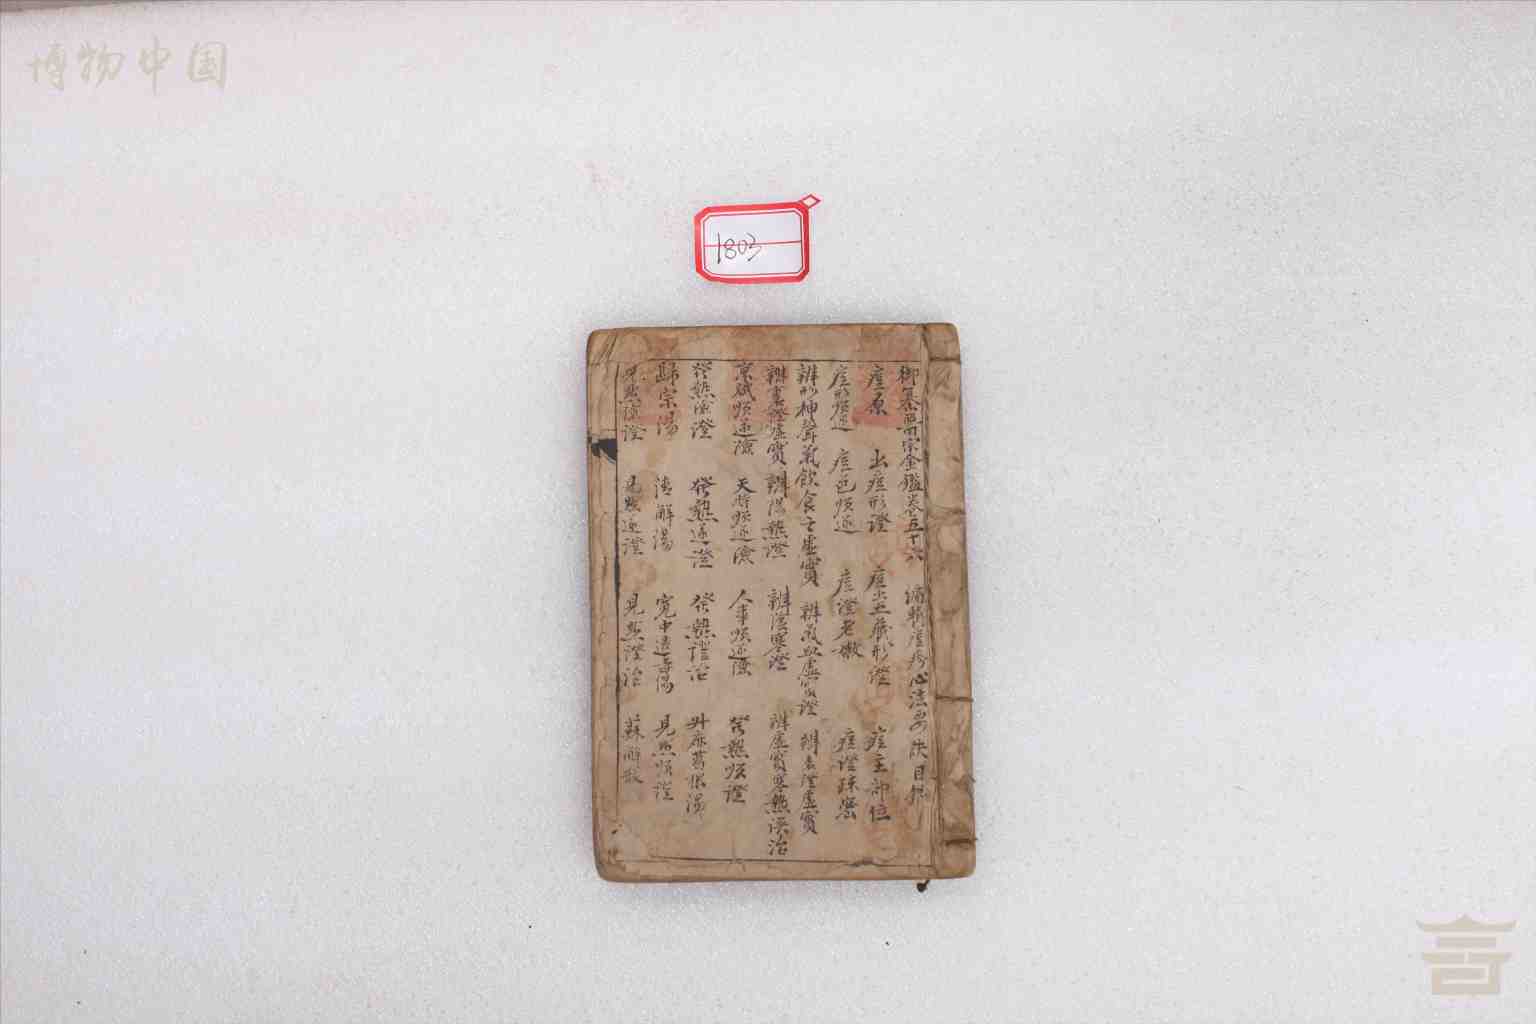 博物中国
1803
御纂醫宗金鑑卷五十六 編輯痘疹心法要訣目錄
痘原 出痘形證 痘出五臟形證 痘主部位
痘形順逆 痘色順逆 痘證老嫩 痘證疎密
辨形神聲氣飲食之虛實 辨氣血虛實證 辨表證虛實
辨裏證虛實 辨陽熱證 辨陰寒證 辨虛實寒熱誤治
禀賦順逆險 天時順逆險 人事順逆險 發熱順證
發熱險證 發熱逆證 發熱證治 升麻葛根湯
歸宗湯 清解湯 寬中透毒湯 見點順證
見點險證 見點逆證 見點證治 蘇解散